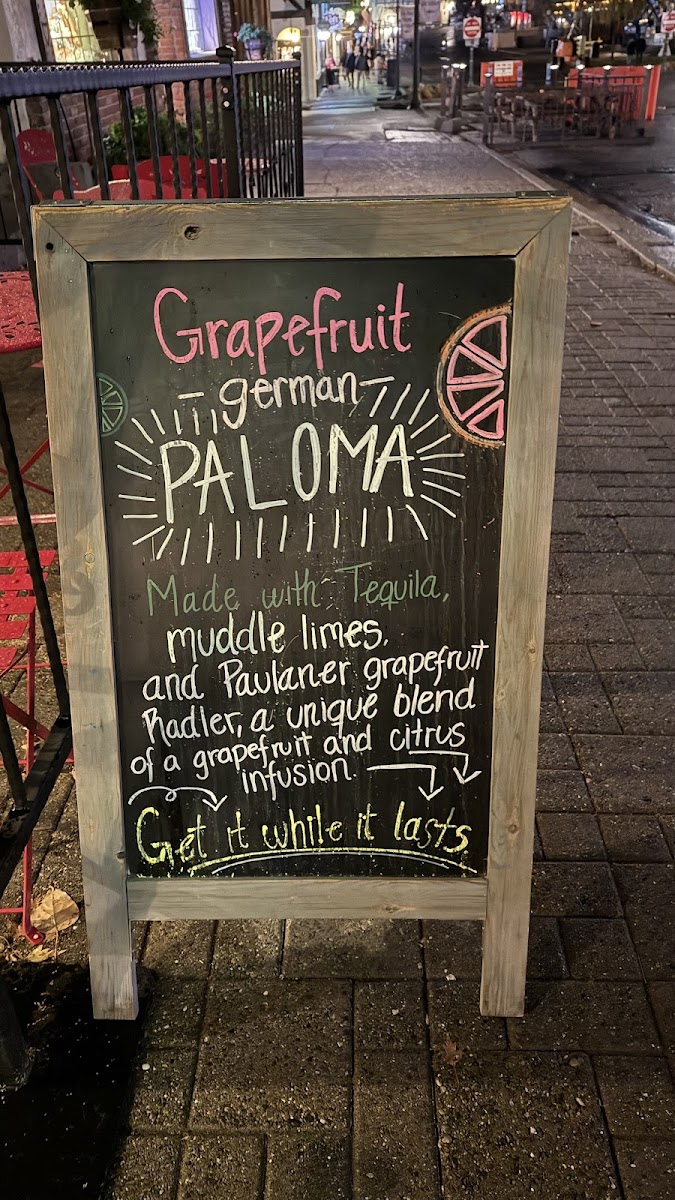 Grapefruit
german
PALOMA
Made with Tequila,
muddle limes,
and Paulaner grapefruit
Radler, a unique blend
of a grapefruit and citrus
infusion.
Get it while it lasts